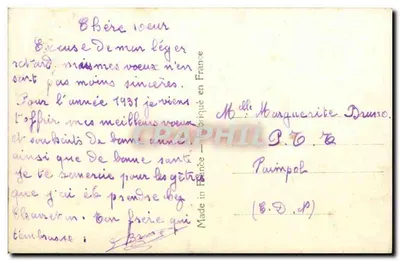 Chère soeur
Excuse de mon léger
retard, mais mes voeux n'en
sont pas moins sincères.
Pour l'année 1931 je viens
t'offrir mes meilleurs voeux
et souhaits de bonne année
ainsi que de bonne santé
Je te remercie pour les gêtres
que j'ai été prendre
Ton frère qui
t'embrasse :
Made in France — Fabriqué en France
Melle Marguerite Brusso
P.T.T.
Paimpol
(C.D.N)